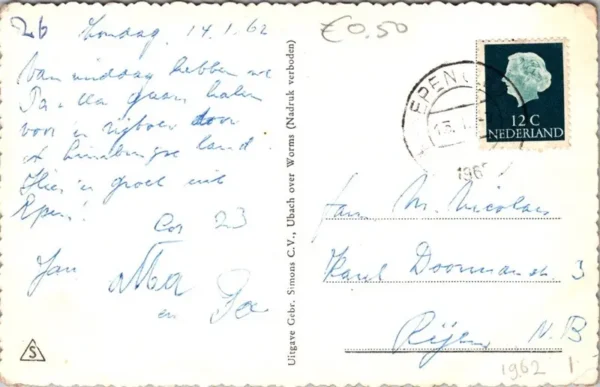 26 Zondag 14.1.62
Van middag hebben we
Pa - Ma gaan halen
voor 'n rijtoer door
't Limburgse land.
Hier 'n groet uit
Epen!
Cor 23
Jan Ma
en Pa
S
Uitgave Gebr. Simons C.V., Ubach over Worms (Nadruk verboden)
€0.50
EPEN
12 C
NEDERLAND
Fam M. Nicolaes
Karel Doormanstr. 3
Rijen N.B
1962 1